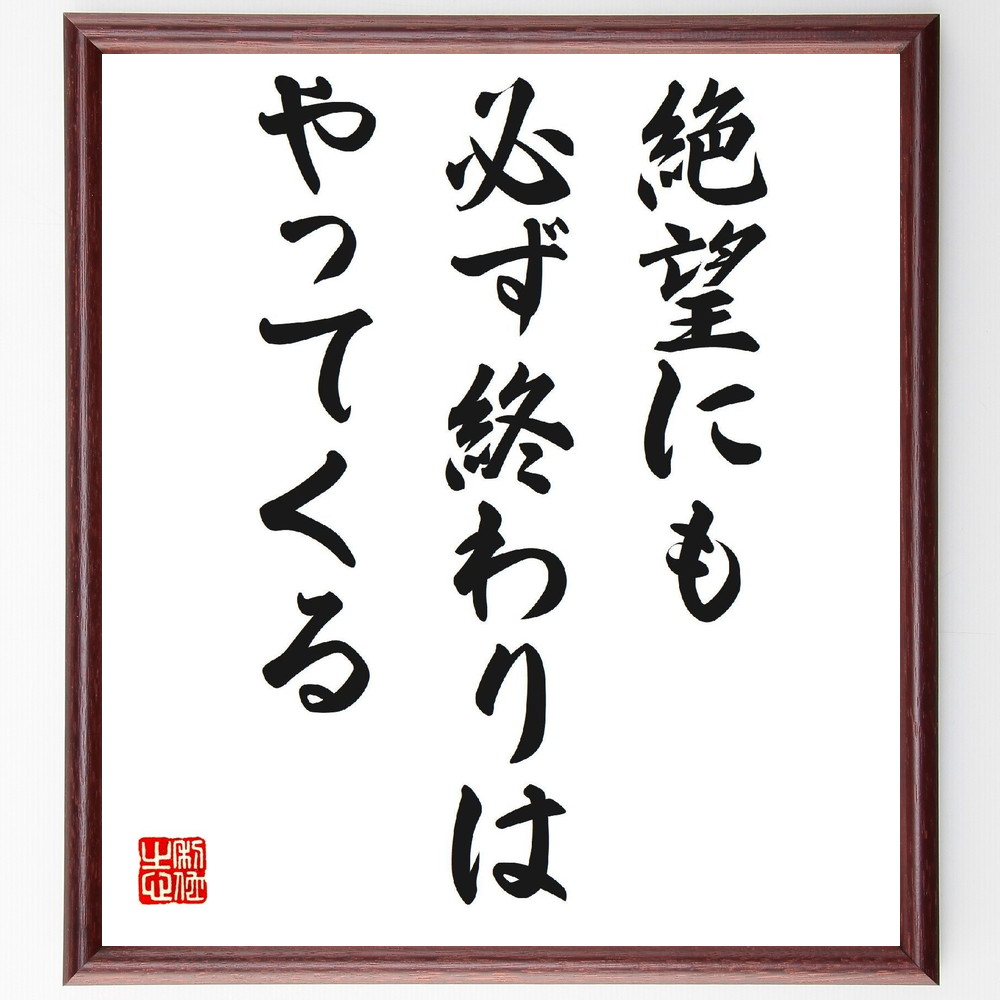 絶望にも
必ず終わりは
やってくる